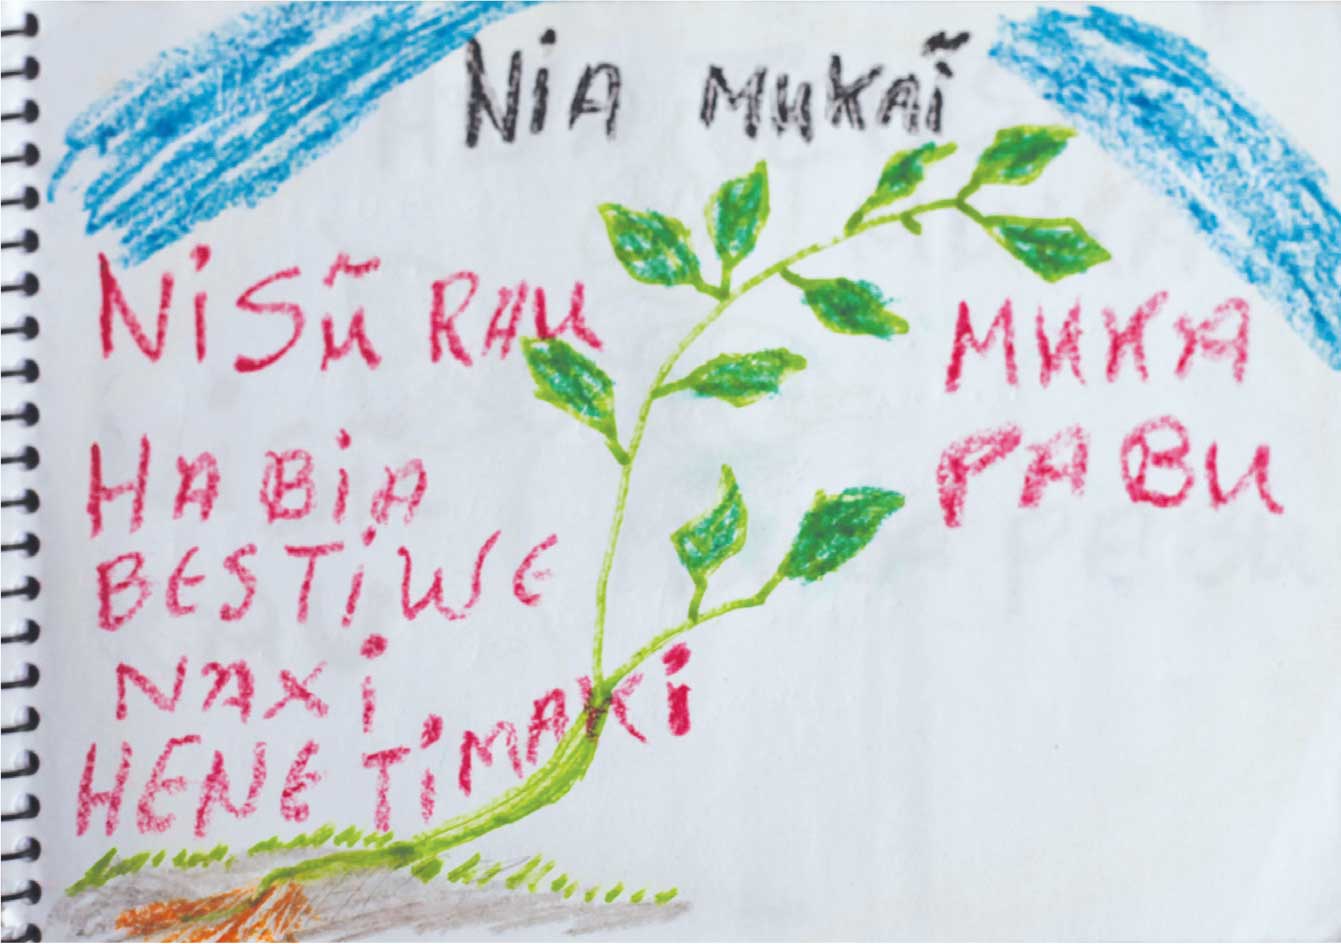 NiA MUKAĨ
NiSŨ RAU
HABiA
BESTiWE
NAXi
HENE TiMAKi
MUKA
PABU